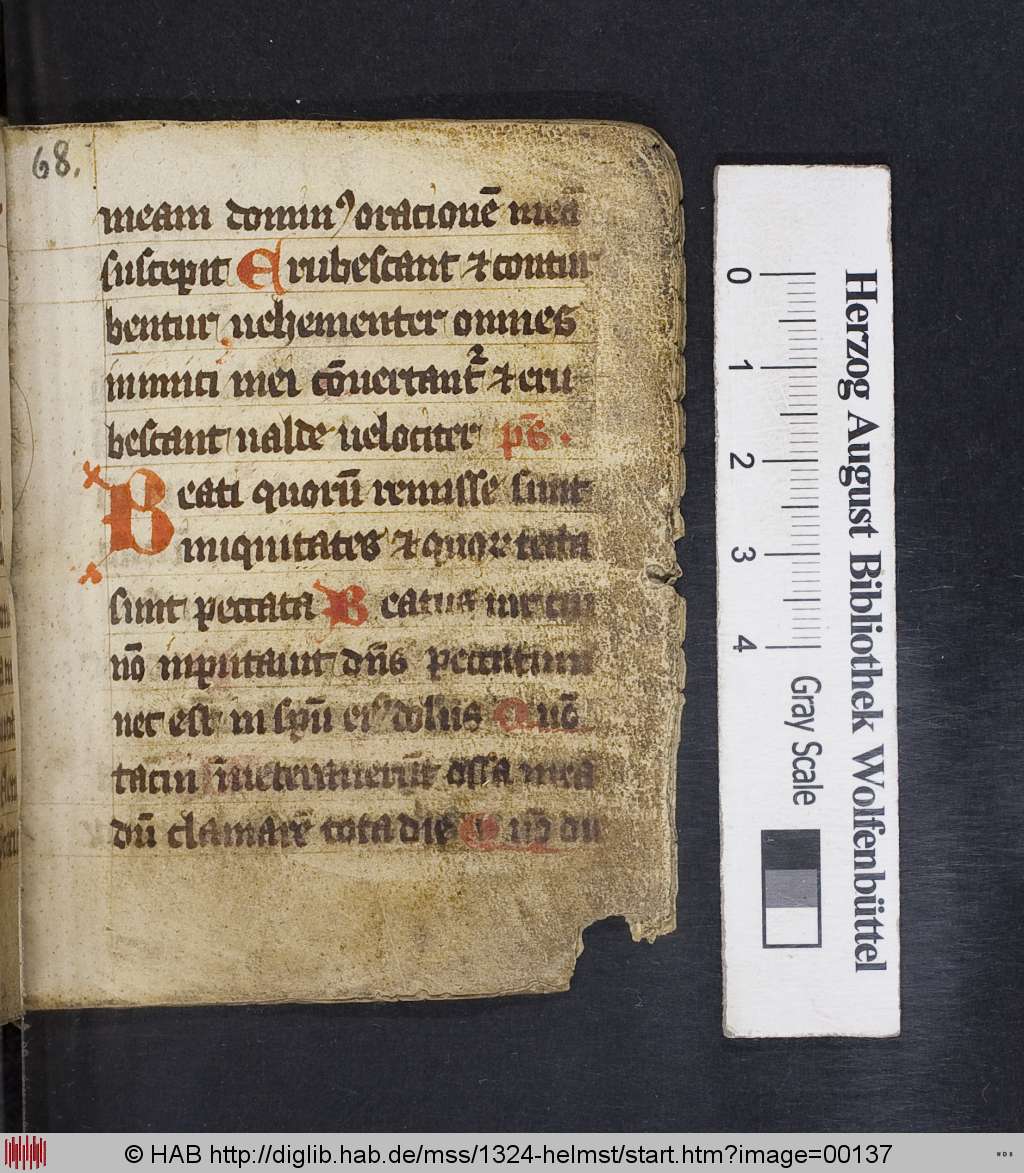 68.
meam domin⁹ orationē meā
suscepit Erubescant ⁊ contur
bentur uehementer omnes
inimici mei cōuertantᷣ ⁊ eru
bescant ualde uelociter ps̄.
Beati quorū remisse sunt
iniquitates ⁊ quoꝝ tecta
sunt peccata Beatus uir cui
nō inputauit dn̄s peccatum
nec est in spū eiꝰ dolus Quō
tacui īueterauerūt ossa mea
dū clamarē tota die Quō
0 1 2 3 4
Gray Scale
Herzog August Bibliothek Wolfenbüttel
© HAB http://diglib.hab.de/mss/1324-helmst/start.htm?image=00137